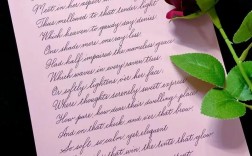 Meet in her aspect
Thus mellowed to that tender light
Which heaven to gaudy day denies
One shade more, one ray less,
Had half impaired the nameless grace
Which waves in every raven tress
Or softly lightens o'er her face
Where thoughts serenely sweet express
How pure, how dear their dwelling-place
And on that cheek, and o'er that brow
So soft, so calm, yet eloquent
that win, the tints that glow